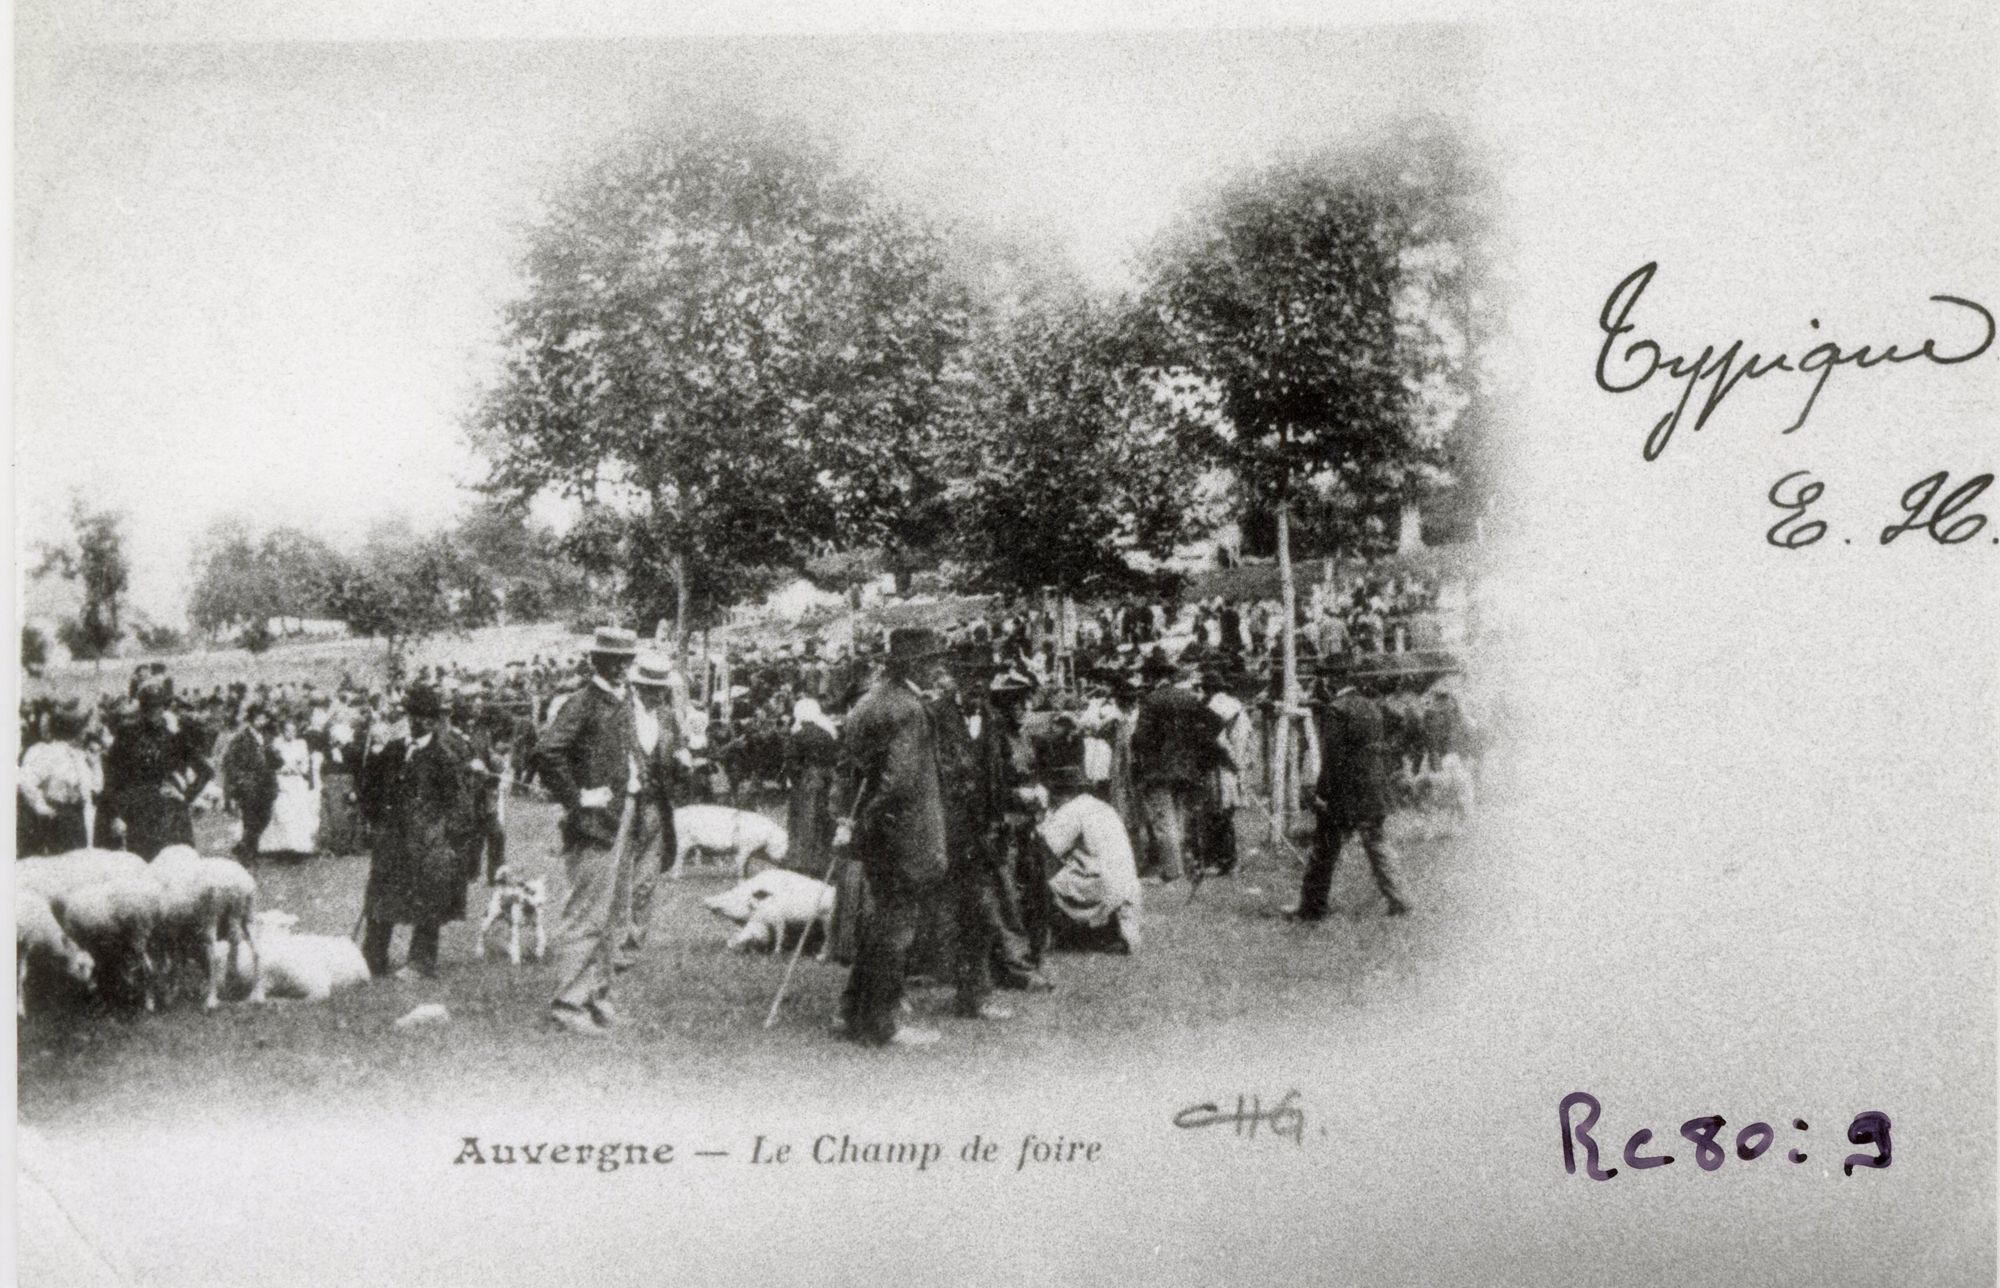 Typique
E. H.
Auvergne — Le Champ de foire
CHG.
Rc80:9